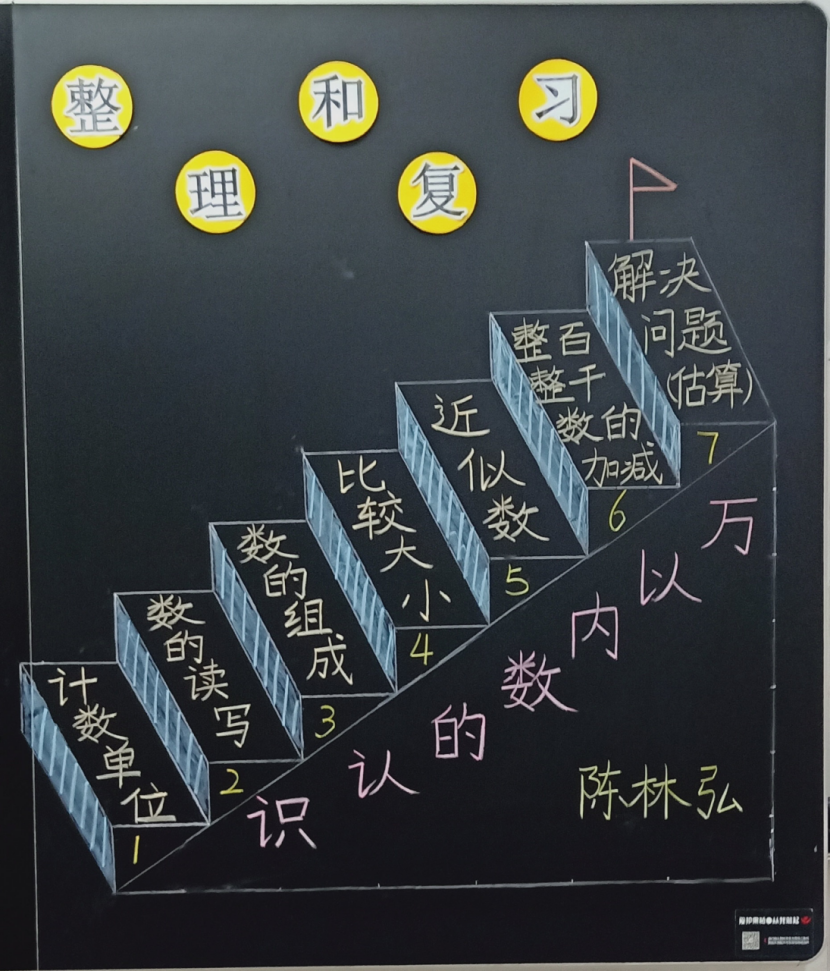 整理和复习
解决
问题
(估算)
7
整百
整千
数的
加减
6
近似数
5
比较大小
4
数的组成
3
数的读写
2
计数单位
1
万以内数的认识
陈林弘